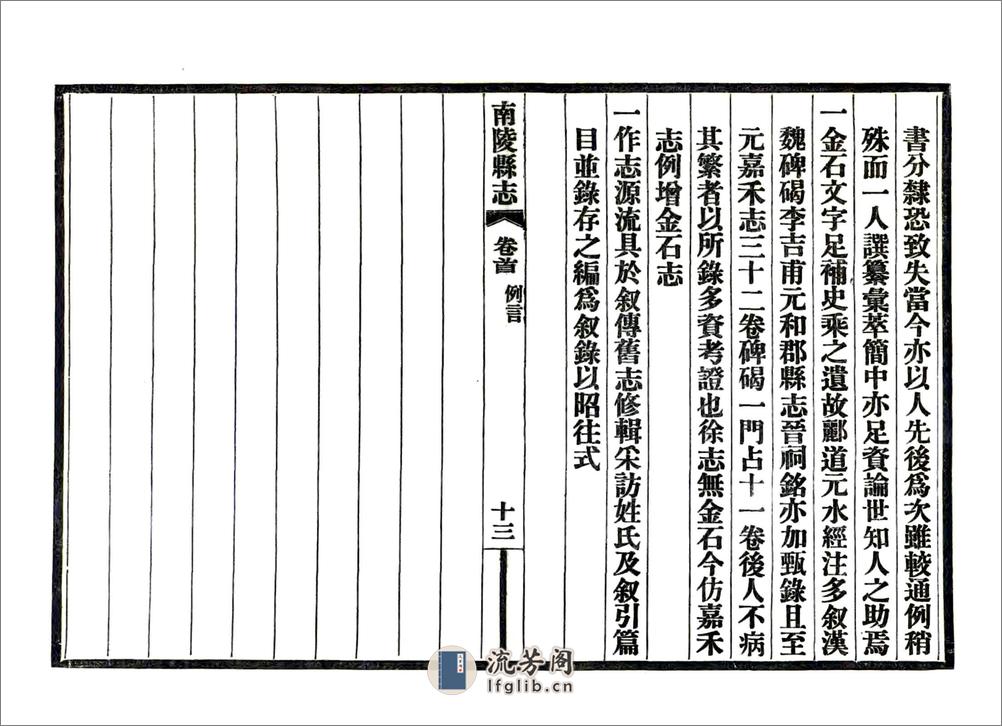 書分隸恐致失當今亦以人先後爲次雖較通例稍
殊而一人譔纂彙萃簡中亦足資論世知人之助焉
一金石文字足補史乘之遺故酈道元水經注多叙漢
魏碑碣李吉甫元和郡縣志晉祠銘亦加甄錄且至
元嘉禾志三十二卷碑碣一門占十一卷後人不病
其繁者以所錄多資考證也徐志無金石今仿嘉禾
志例增金石志
一作志源流具於叙傳舊志修輯采訪姓氏及叙引篇
目並錄存之編爲叙錄以昭往式
南陵縣志
卷首
例言
十三
流芳阁
lfglib.cn